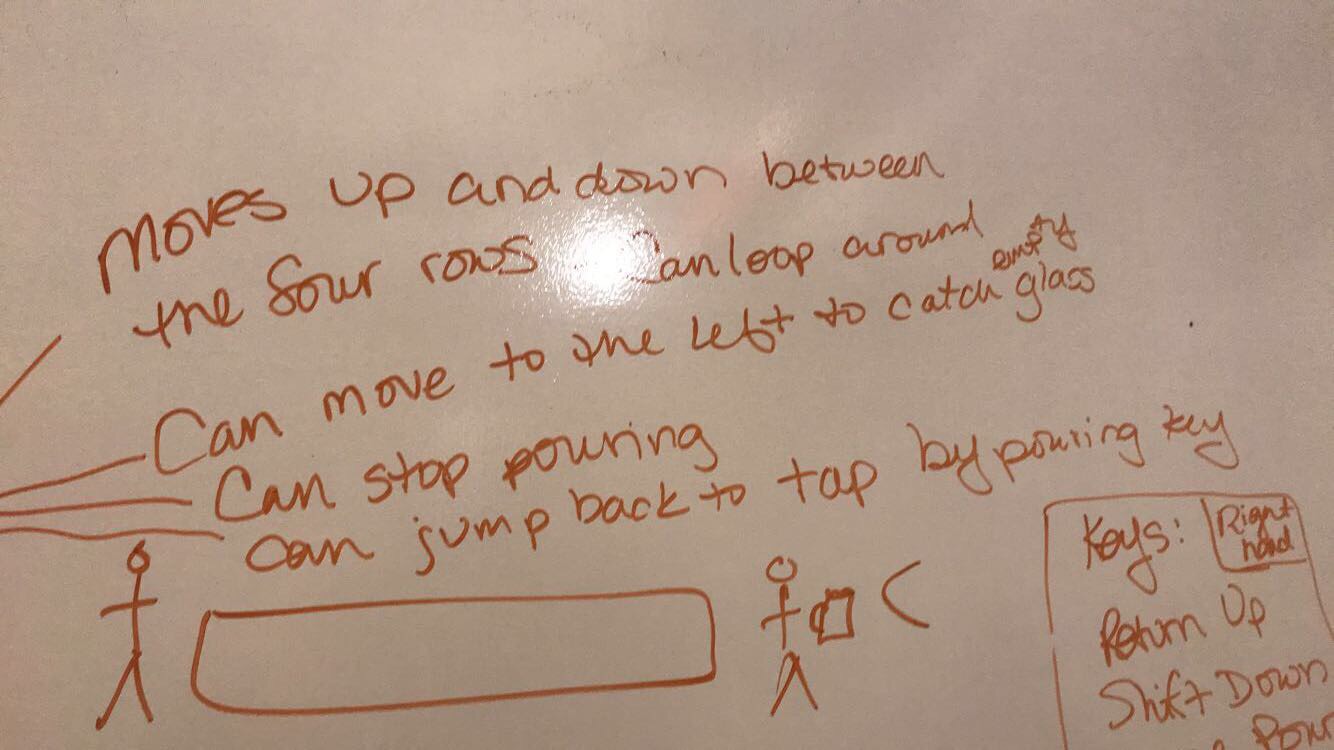 moves up and down between
the four rows. Can loop around
Can move to the left to catch empty glass
Can stop pouring
can jump back to tap by pouring key
Keys: Right hand
Return Up
Shift Down